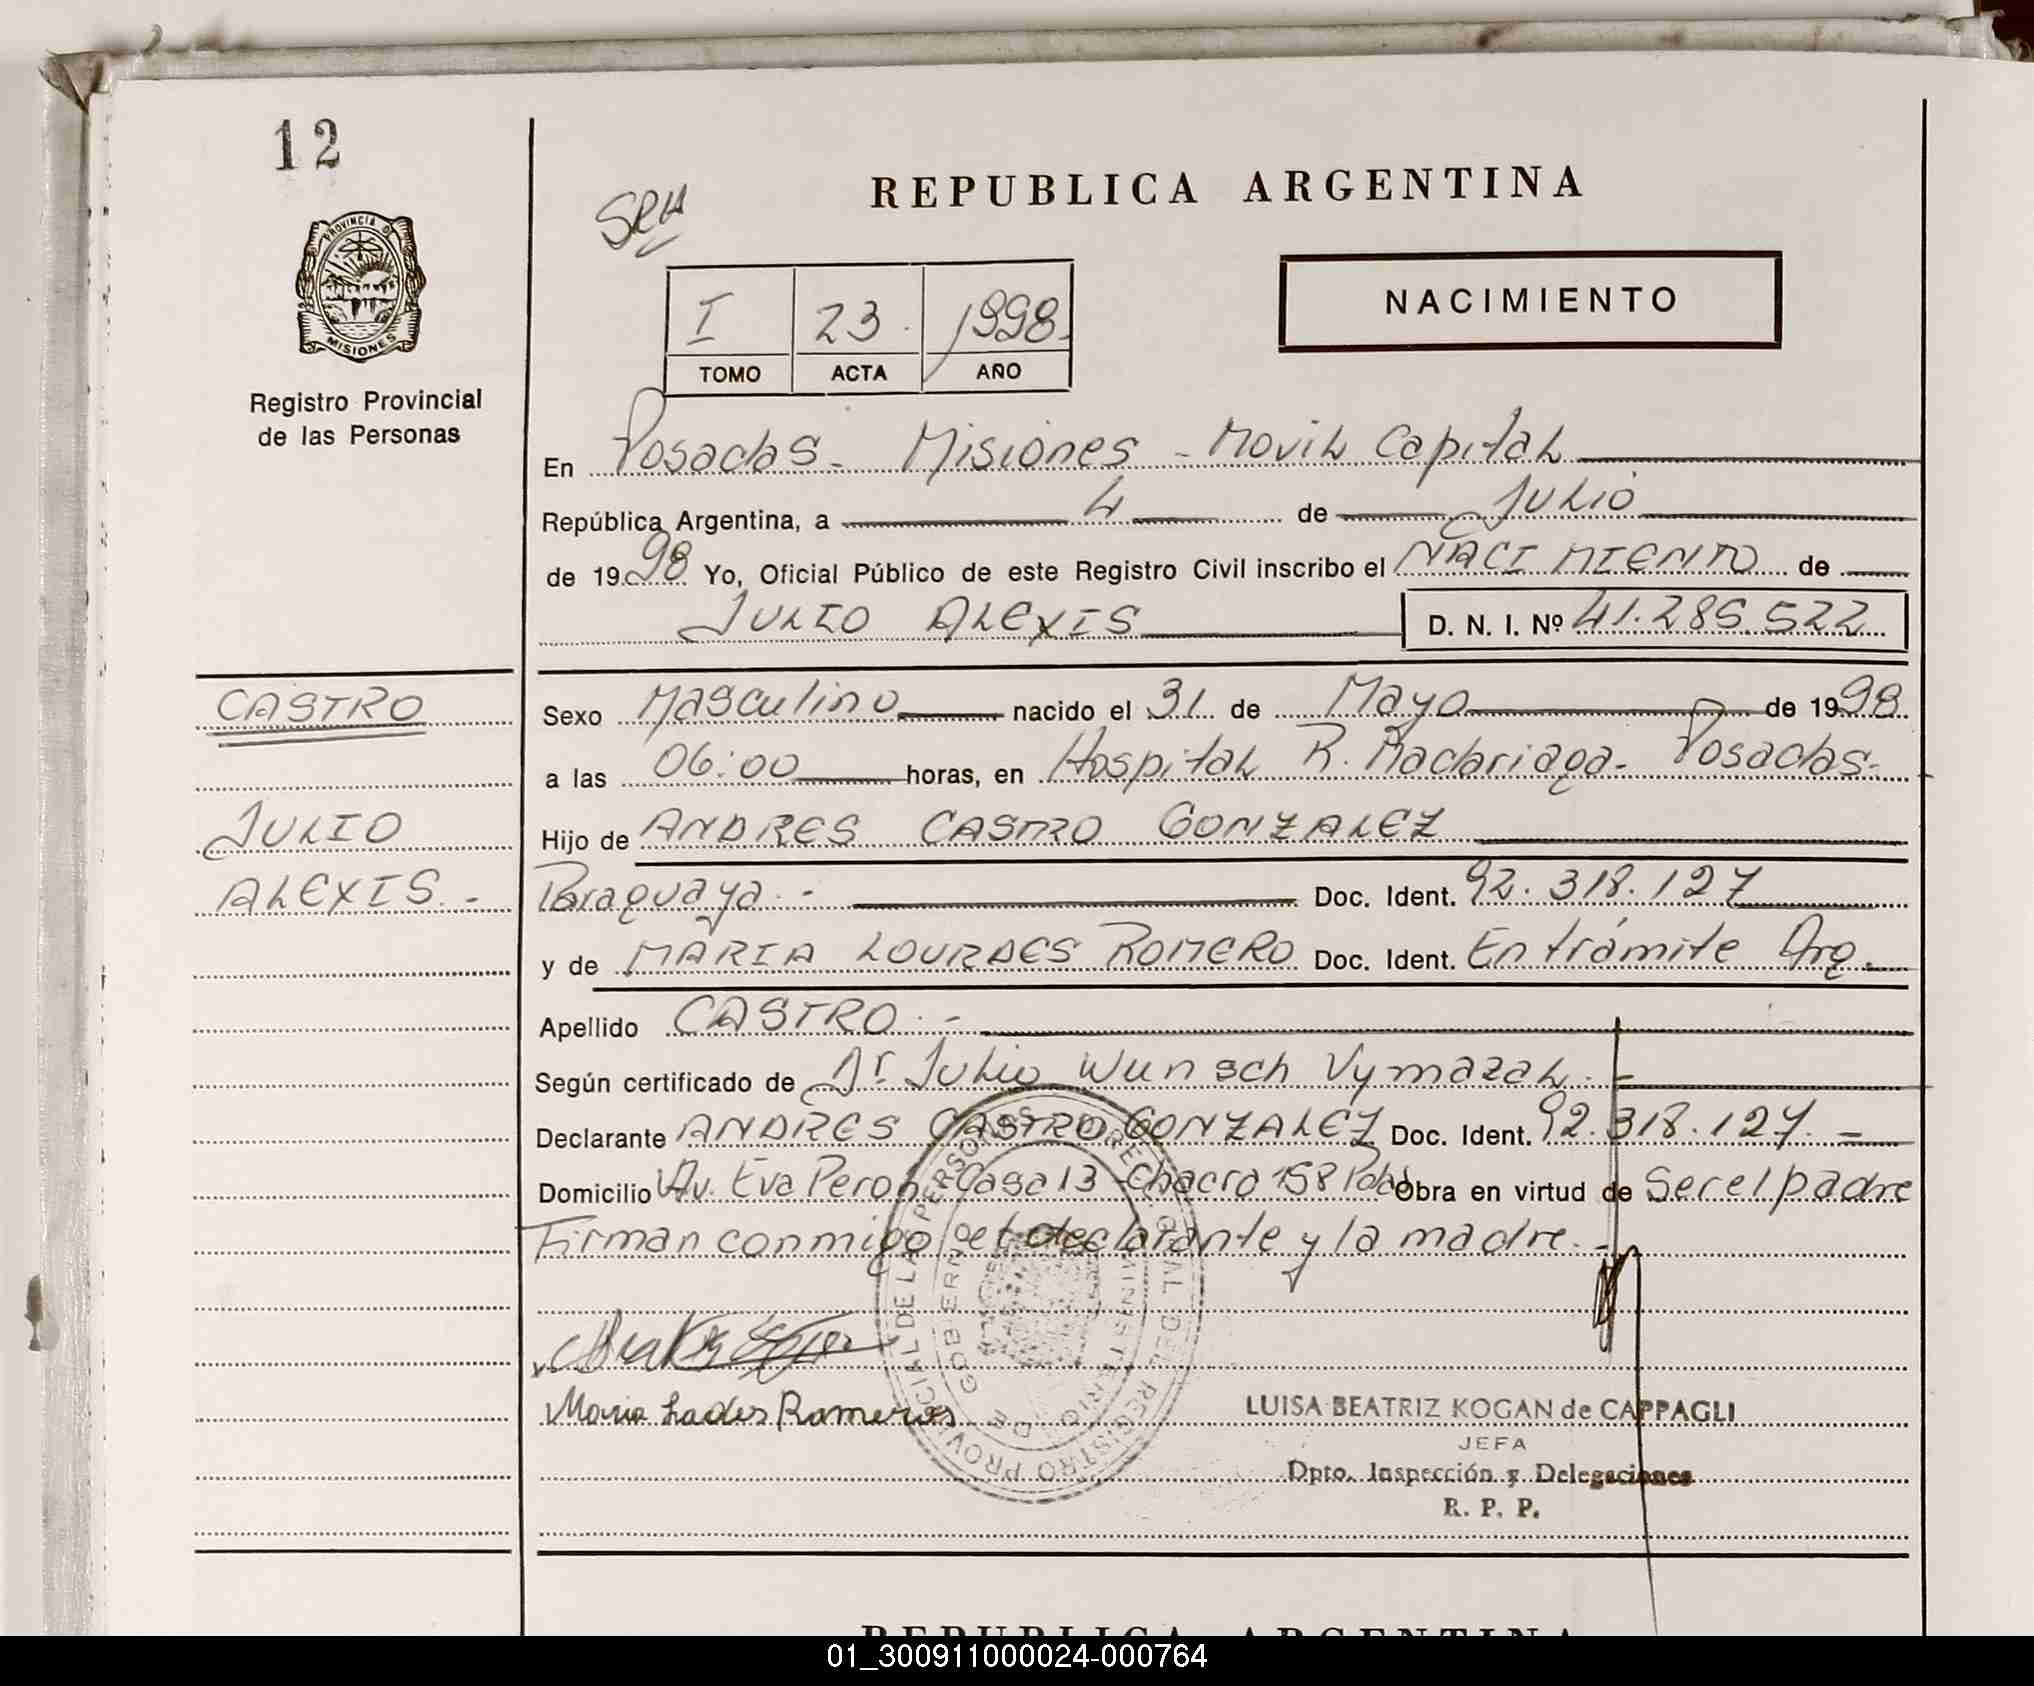 12
REPUBLICA ARGENTINA
PROVINCIA DE
MISIONES
Registro Provincial
de las Personas
NACIMIENTO
I 23. 1998.
TOMO ACTA AÑO
En Posadas - Misiones - Movil Capital
República Argentina, a 4 de Julio
de 1998 Yo, Oficial Público de este Registro Civil inscribo el NACIMIENTO de
JULIO ALEXIS D. N. I. Nº 41.286.522
CASTRO
JULIO
ALEXIS.-
Sexo Masculino nacido el 31 de Mayo de 1998
a las 06:00 horas, en Hospital R. Madariaga - Posadas -
Hijo de ANDRES CASTRO GONZALEZ
Paraguaya.- Doc. Ident. 92.318.127
y de MARIA LOURDES ROMERO Doc. Ident. En trámite Arg.
Apellido CASTRO.-
Según certificado de Dr. Julio Wunsch Vymazal.-
Declarante ANDRES CASTRO GONZALEZ Doc. Ident. 92.318.127.-
Domicilio Av. Eva Peron Casa 13 - Chacra 158 Pdas Obra en virtud de Ser el padre
Firman conmigo el declarante y la madre.-
DIREC. GRAL DEL REGISTRO PROVINCIAL DE LAS PERSONAS
MINISTERIO DE GOBIERNO
LUISA BEATRIZ KOGAN de CAPPAGLI
JEFA
Dpto. Inspección y Delegaciones
R. P. P.
REPUBLICA ARGENTINA
01_300911000024-000764